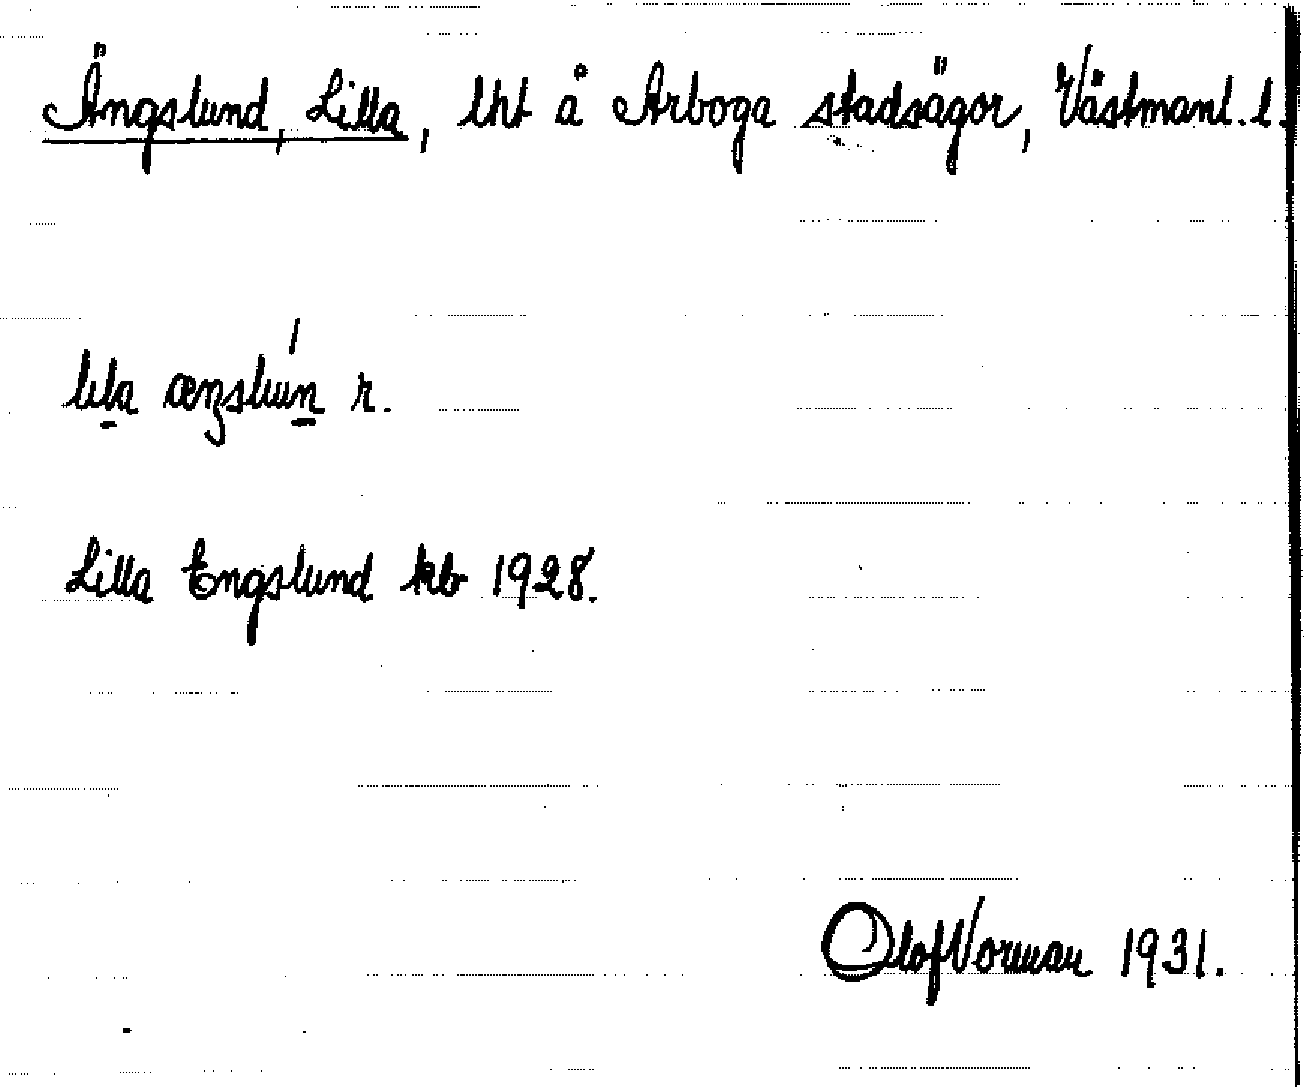 Ängslund, Lilla, lht å Arboga stadsägor, Västmanl. l.
Lilla Engslund kb 1928.
Olof Norman 1931.